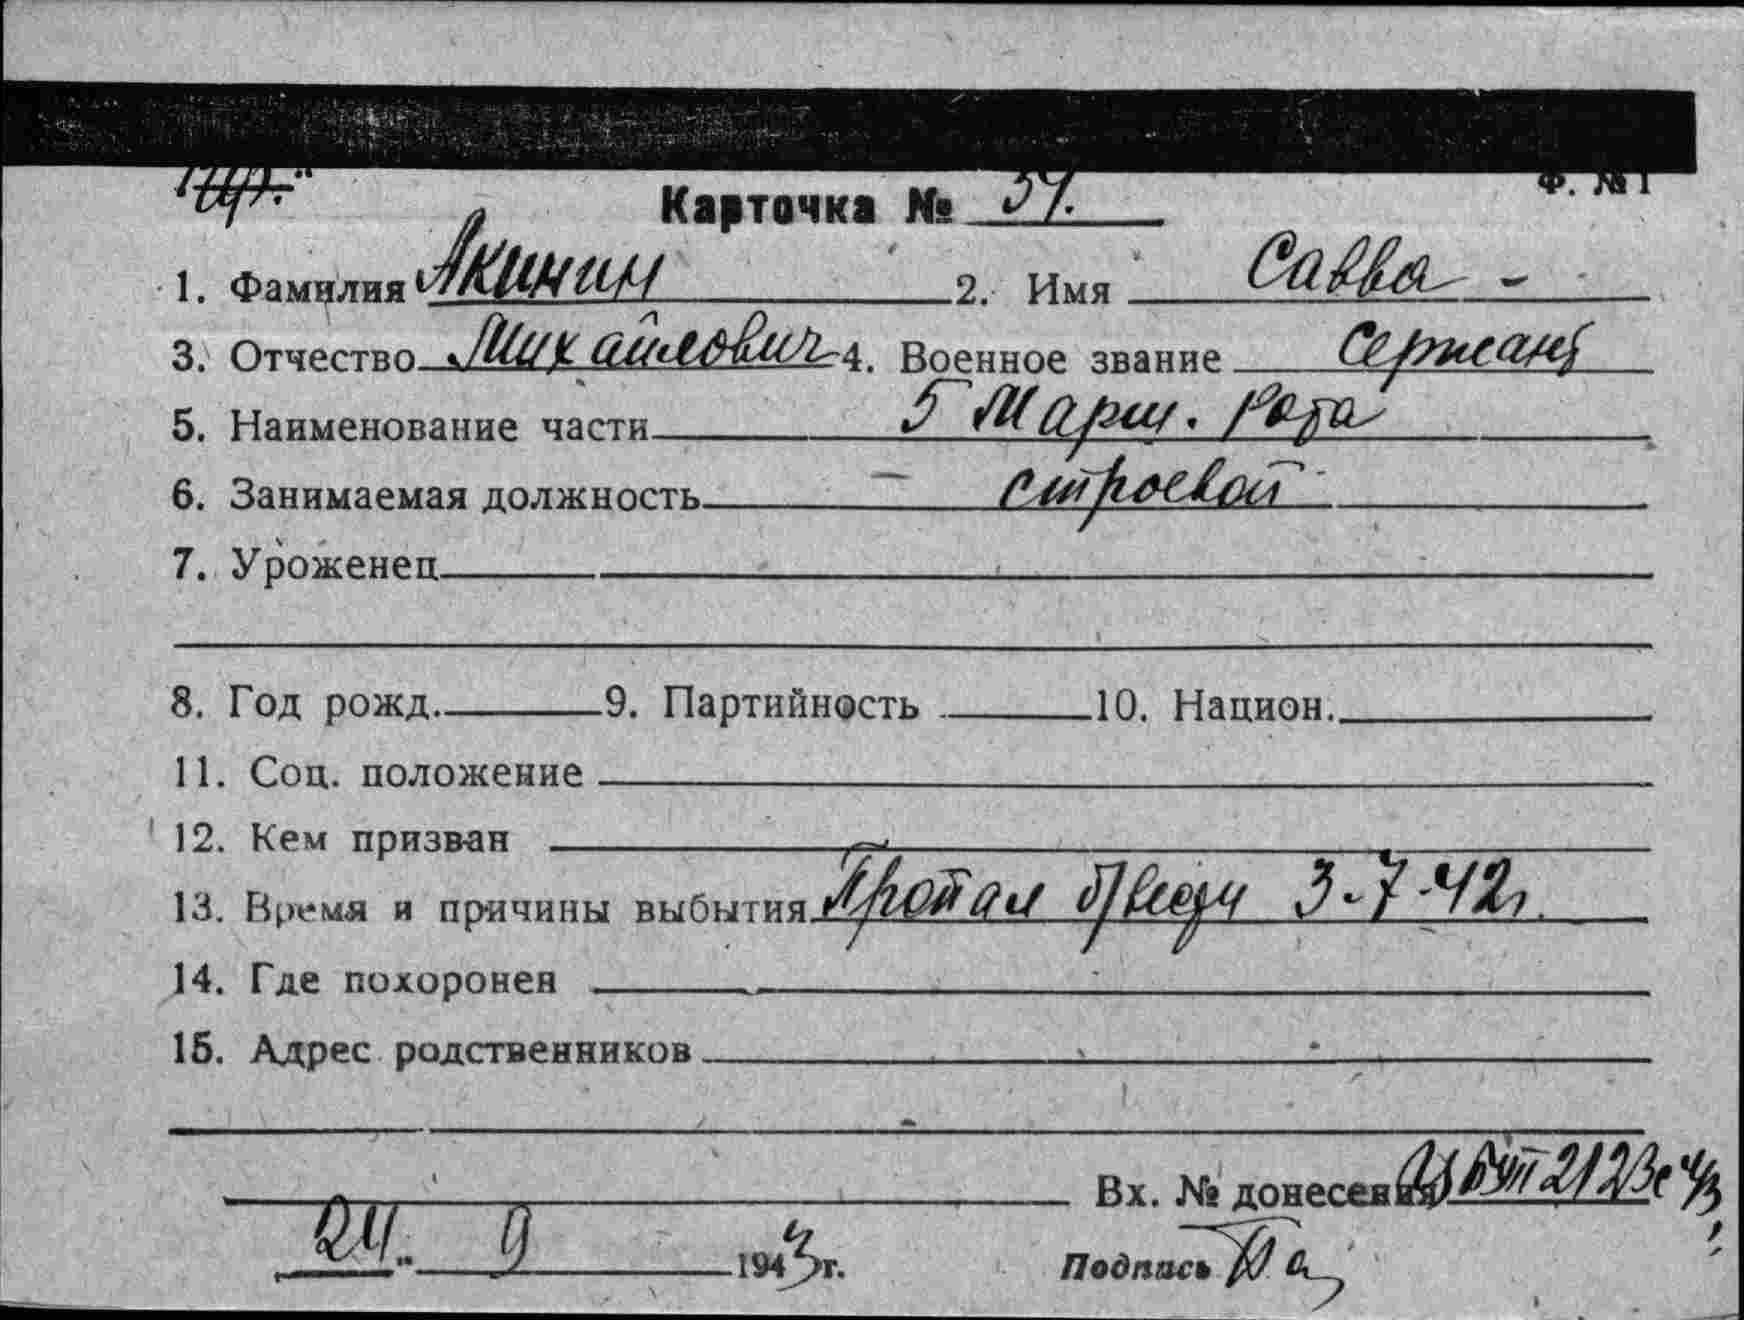 Карточка № 34.
Ф. № 1
1. Фамилия Акинин 2. Имя Савва -
3. Отчество Михайлович 4. Военное звание Сержант
5. Наименование части 5 Марш. Рота
6. Занимаемая должность строевой
7. Уроженец
8. Год рожд. 9. Партийность 10. Национ.
11. Соц. положение
12. Кем призван
13. Время и причины выбытия Пропал б/вести 3-7-42г.
14. Где похоронен
15. Адрес родственников
Вх. № донесения 2123с
24. 9 1943г. Подпись